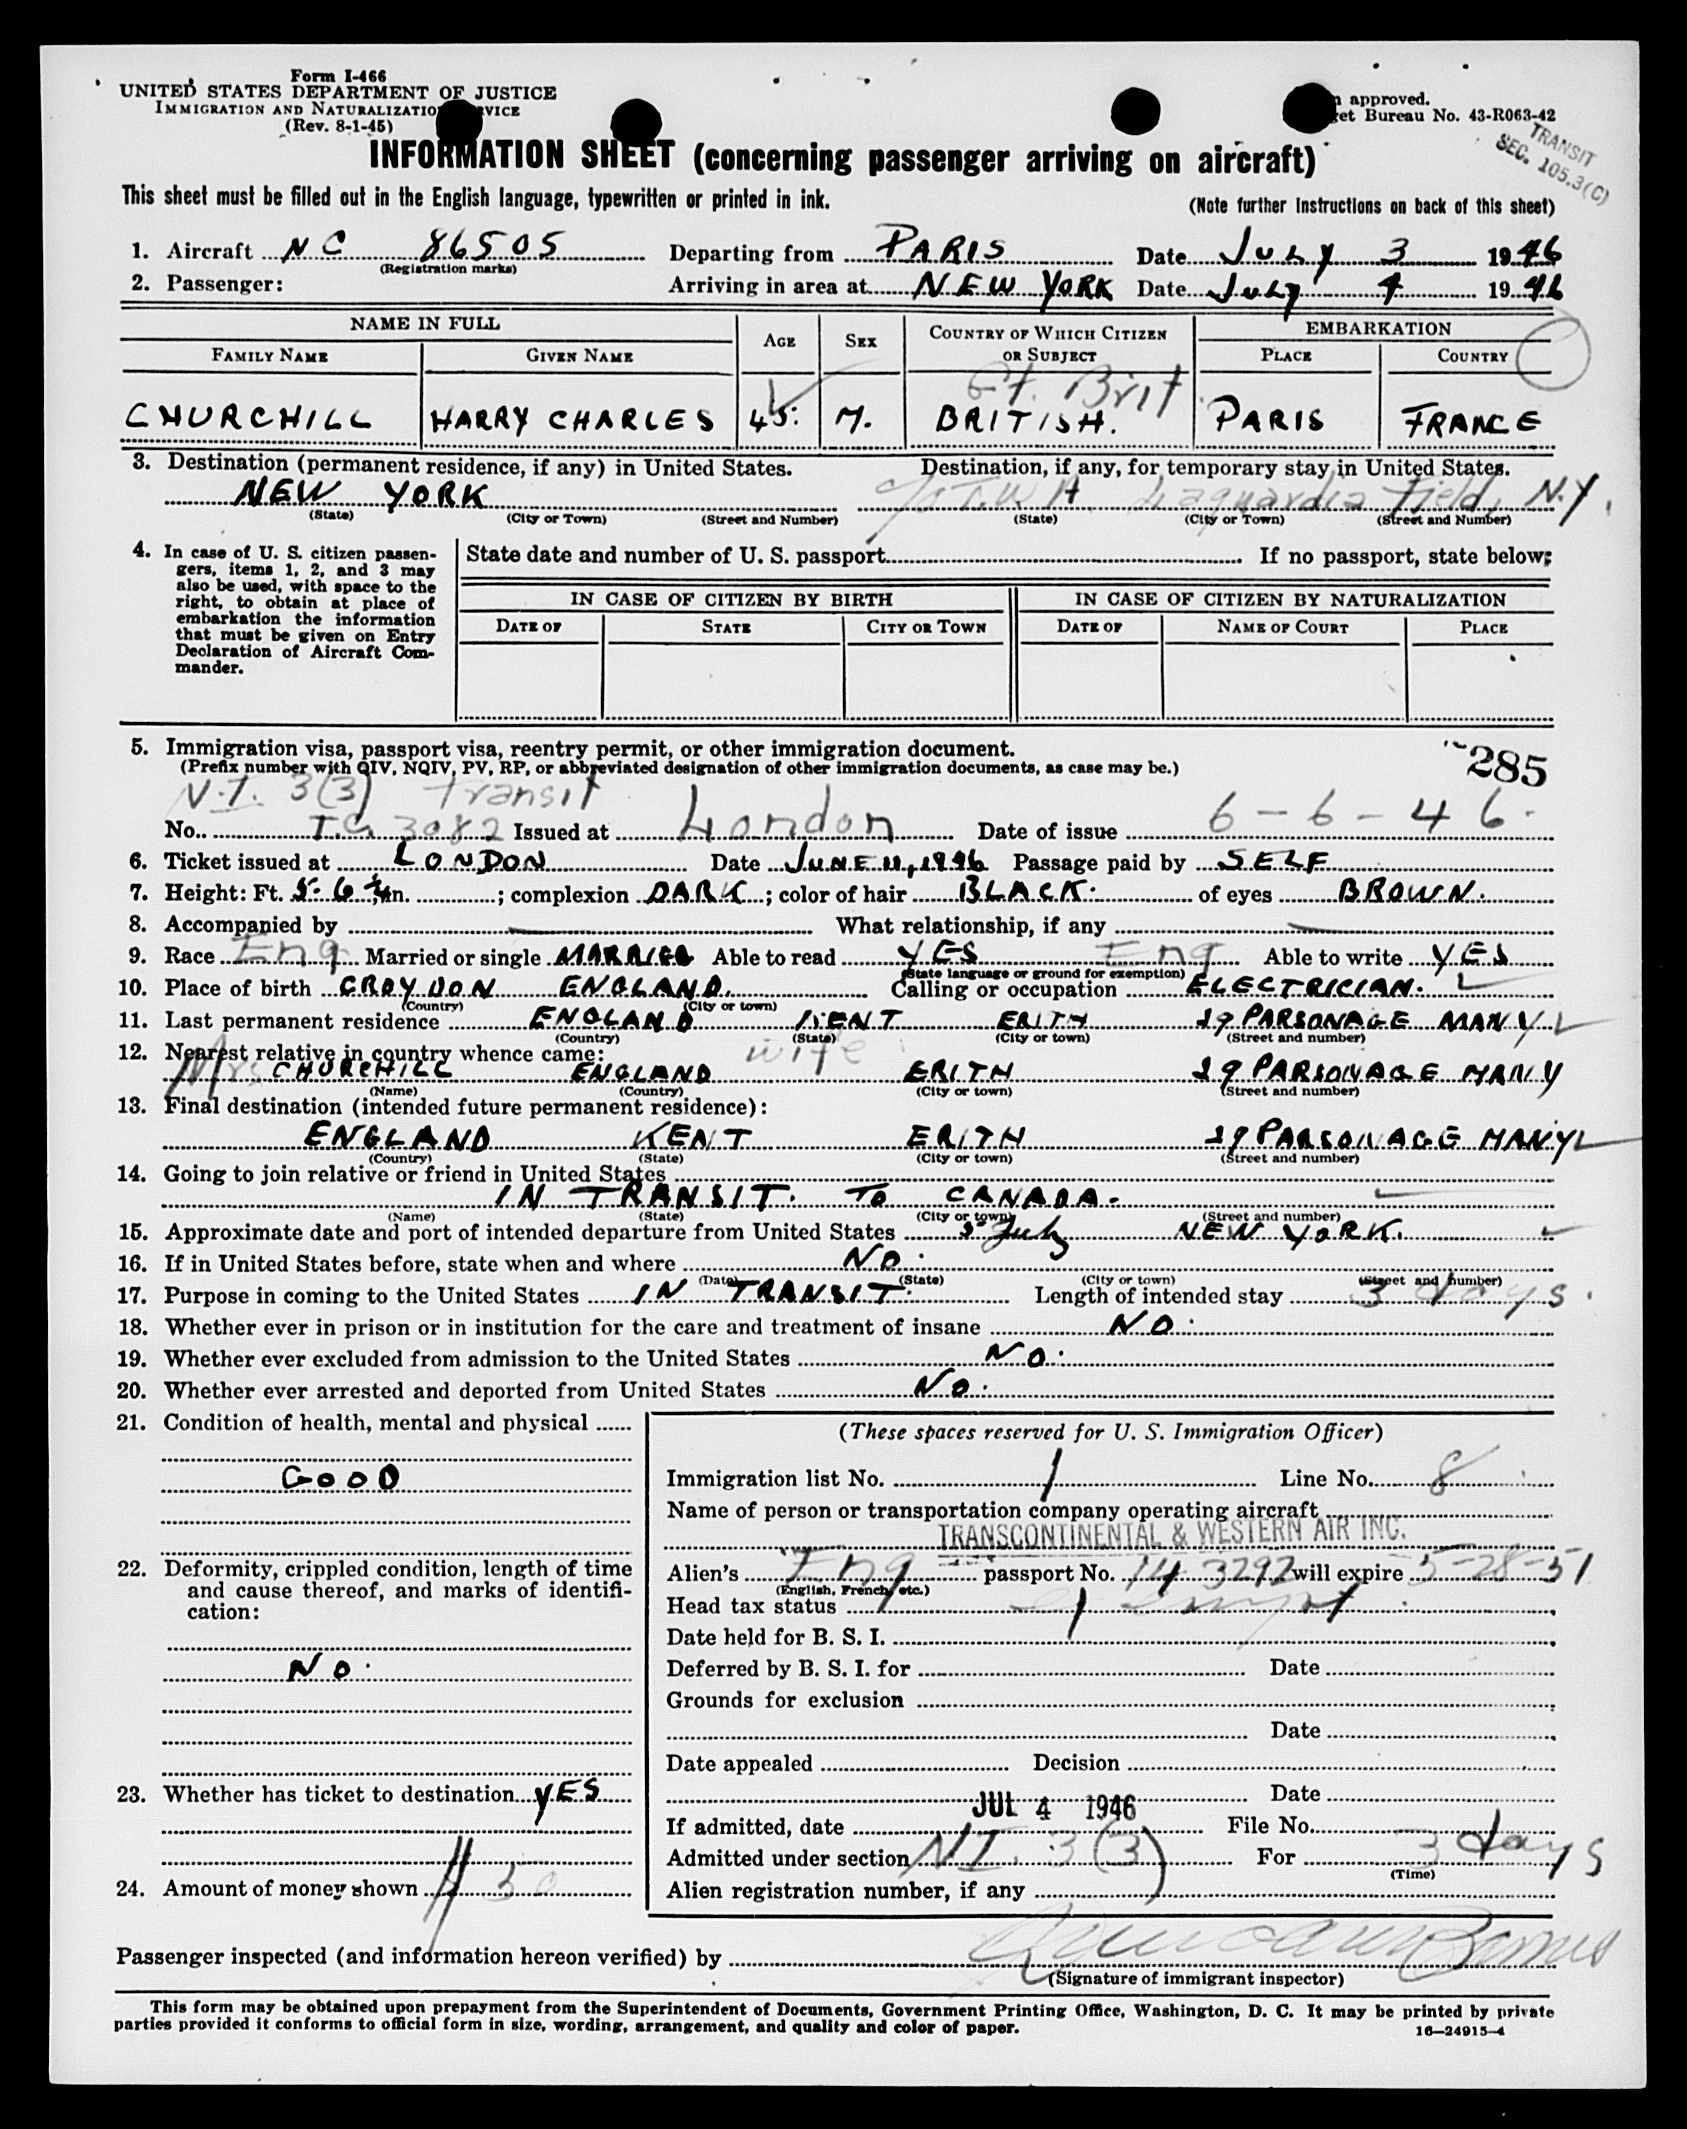 Form I-466
UNITED STATES DEPARTMENT OF JUSTICE
IMMIGRATION AND NATURALIZATION SERVICE
(Rev. 8-1-45)
approved.
Bureau No. 43-R063-42
TRANSIT
SEC. 105.3(C)
INFORMATION SHEET (concerning passenger arriving on aircraft)
This sheet must be filled out in the English language, typewritten or printed in ink.
(Note further instructions on back of this sheet)
1. Aircraft NC 86505 Departing from PARIS Date JULY 3 1946
(Registration marks)
2. Passenger: Arriving in area at NEW YORK Date July 4 1946
NAME IN FULL AGE SEX COUNTRY OF WHICH CITIZEN OR SUBJECT EMBARKATION
FAMILY NAME GIVEN NAME PLACE COUNTRY
Gt. Brit.
CHURCHILL HARRY CHARLES 45. M. BRITISH. PARIS FRANCE
3. Destination (permanent residence, if any) in United States. Destination, if any, for temporary stay in United States.
NEW YORK c/o T.W.A. Laguardia Field, N.Y.
(State) (City or Town) (Street and Number) (State) (City or Town) (Street and Number)
4. In case of U. S. citizen passengers, items 1, 2, and 3 may also be used, with space to the right, to obtain at place of embarkation the information that must be given on Entry Declaration of Aircraft Commander.
State date and number of U. S. passport If no passport, state below:
IN CASE OF CITIZEN BY BIRTH IN CASE OF CITIZEN BY NATURALIZATION
DATE OF STATE CITY OR TOWN DATE OF NAME OF COURT PLACE
5. Immigration visa, passport visa, reentry permit, or other immigration document.
285
(Prefix number with QIV, NQIV, PV, RP, or abbreviated designation of other immigration documents, as case may be.)
N.I. 3(3) Transit
No. T.C. 3082 Issued at London Date of issue 6-6-46.
6. Ticket issued at LONDON Date JUNE 11, 1946 Passage paid by SELF
7. Height: Ft. 5. 6 in. ; complexion DARK ; color of hair BLACK. of eyes BROWN.
8. Accompanied by — What relationship, if any —
9. Race Eng Married or single MARRIED Able to read YES Eng Able to write YES
(State language or ground for exemption)
10. Place of birth CROYDON ENGLAND. Calling or occupation ELECTRICIAN.
(Country) (City or town)
11. Last permanent residence ENGLAND KENT ERITH 29 PARSONAGE MANY
(Country) (State) (City or town) (Street and number)
12. Nearest relative in country whence came: wife
Mrs CHURCHILL ENGLAND ERITH 29 PARSONAGE MANY
(Name) (Country) (City or town) (Street and number)
13. Final destination (intended future permanent residence):
ENGLAND KENT ERITH 29 PARSONAGE MANY
(Country) (State) (City or town) (Street and number)
14. Going to join relative or friend in United States
IN TRANSIT. TO CANADA.
(Name) (State) (City or town) (Street and number)
15. Approximate date and port of intended departure from United States 5 July NEW YORK.
16. If in United States before, state when and where NO.
(Date) (State) (City or town) (Street and number)
17. Purpose in coming to the United States IN TRANSIT. Length of intended stay 3 days.
18. Whether ever in prison or in institution for the care and treatment of insane NO.
19. Whether ever excluded from admission to the United States NO.
20. Whether ever arrested and deported from United States NO.
21. Condition of health, mental and physical
GOOD
22. Deformity, crippled condition, length of time and cause thereof, and marks of identification:
NO.
23. Whether has ticket to destination YES
24. Amount of money shown $ 50
(These spaces reserved for U. S. Immigration Officer)
Immigration list No. 1 Line No. 8
Name of person or transportation company operating aircraft
TRANSCONTINENTAL & WESTERN AIR INC.
Alien's Eng passport No. 143292 will expire 5-28-51
(English, French, etc.)
Head tax status
Date held for B. S. I.
Deferred by B. S. I. for Date
Grounds for exclusion
Date
Date appealed Decision
Date
If admitted, date JUL 4 1946 File No.
Admitted under section N.I. 3(3) For 3 days
(Time)
Alien registration number, if any
Passenger inspected (and information hereon verified) by
(Signature of immigrant inspector)
This form may be obtained upon prepayment from the Superintendent of Documents, Government Printing Office, Washington, D. C. It may be printed by private
parties provided it conforms to official form in size, wording, arrangement, and quality and color of paper.
16—24915-4